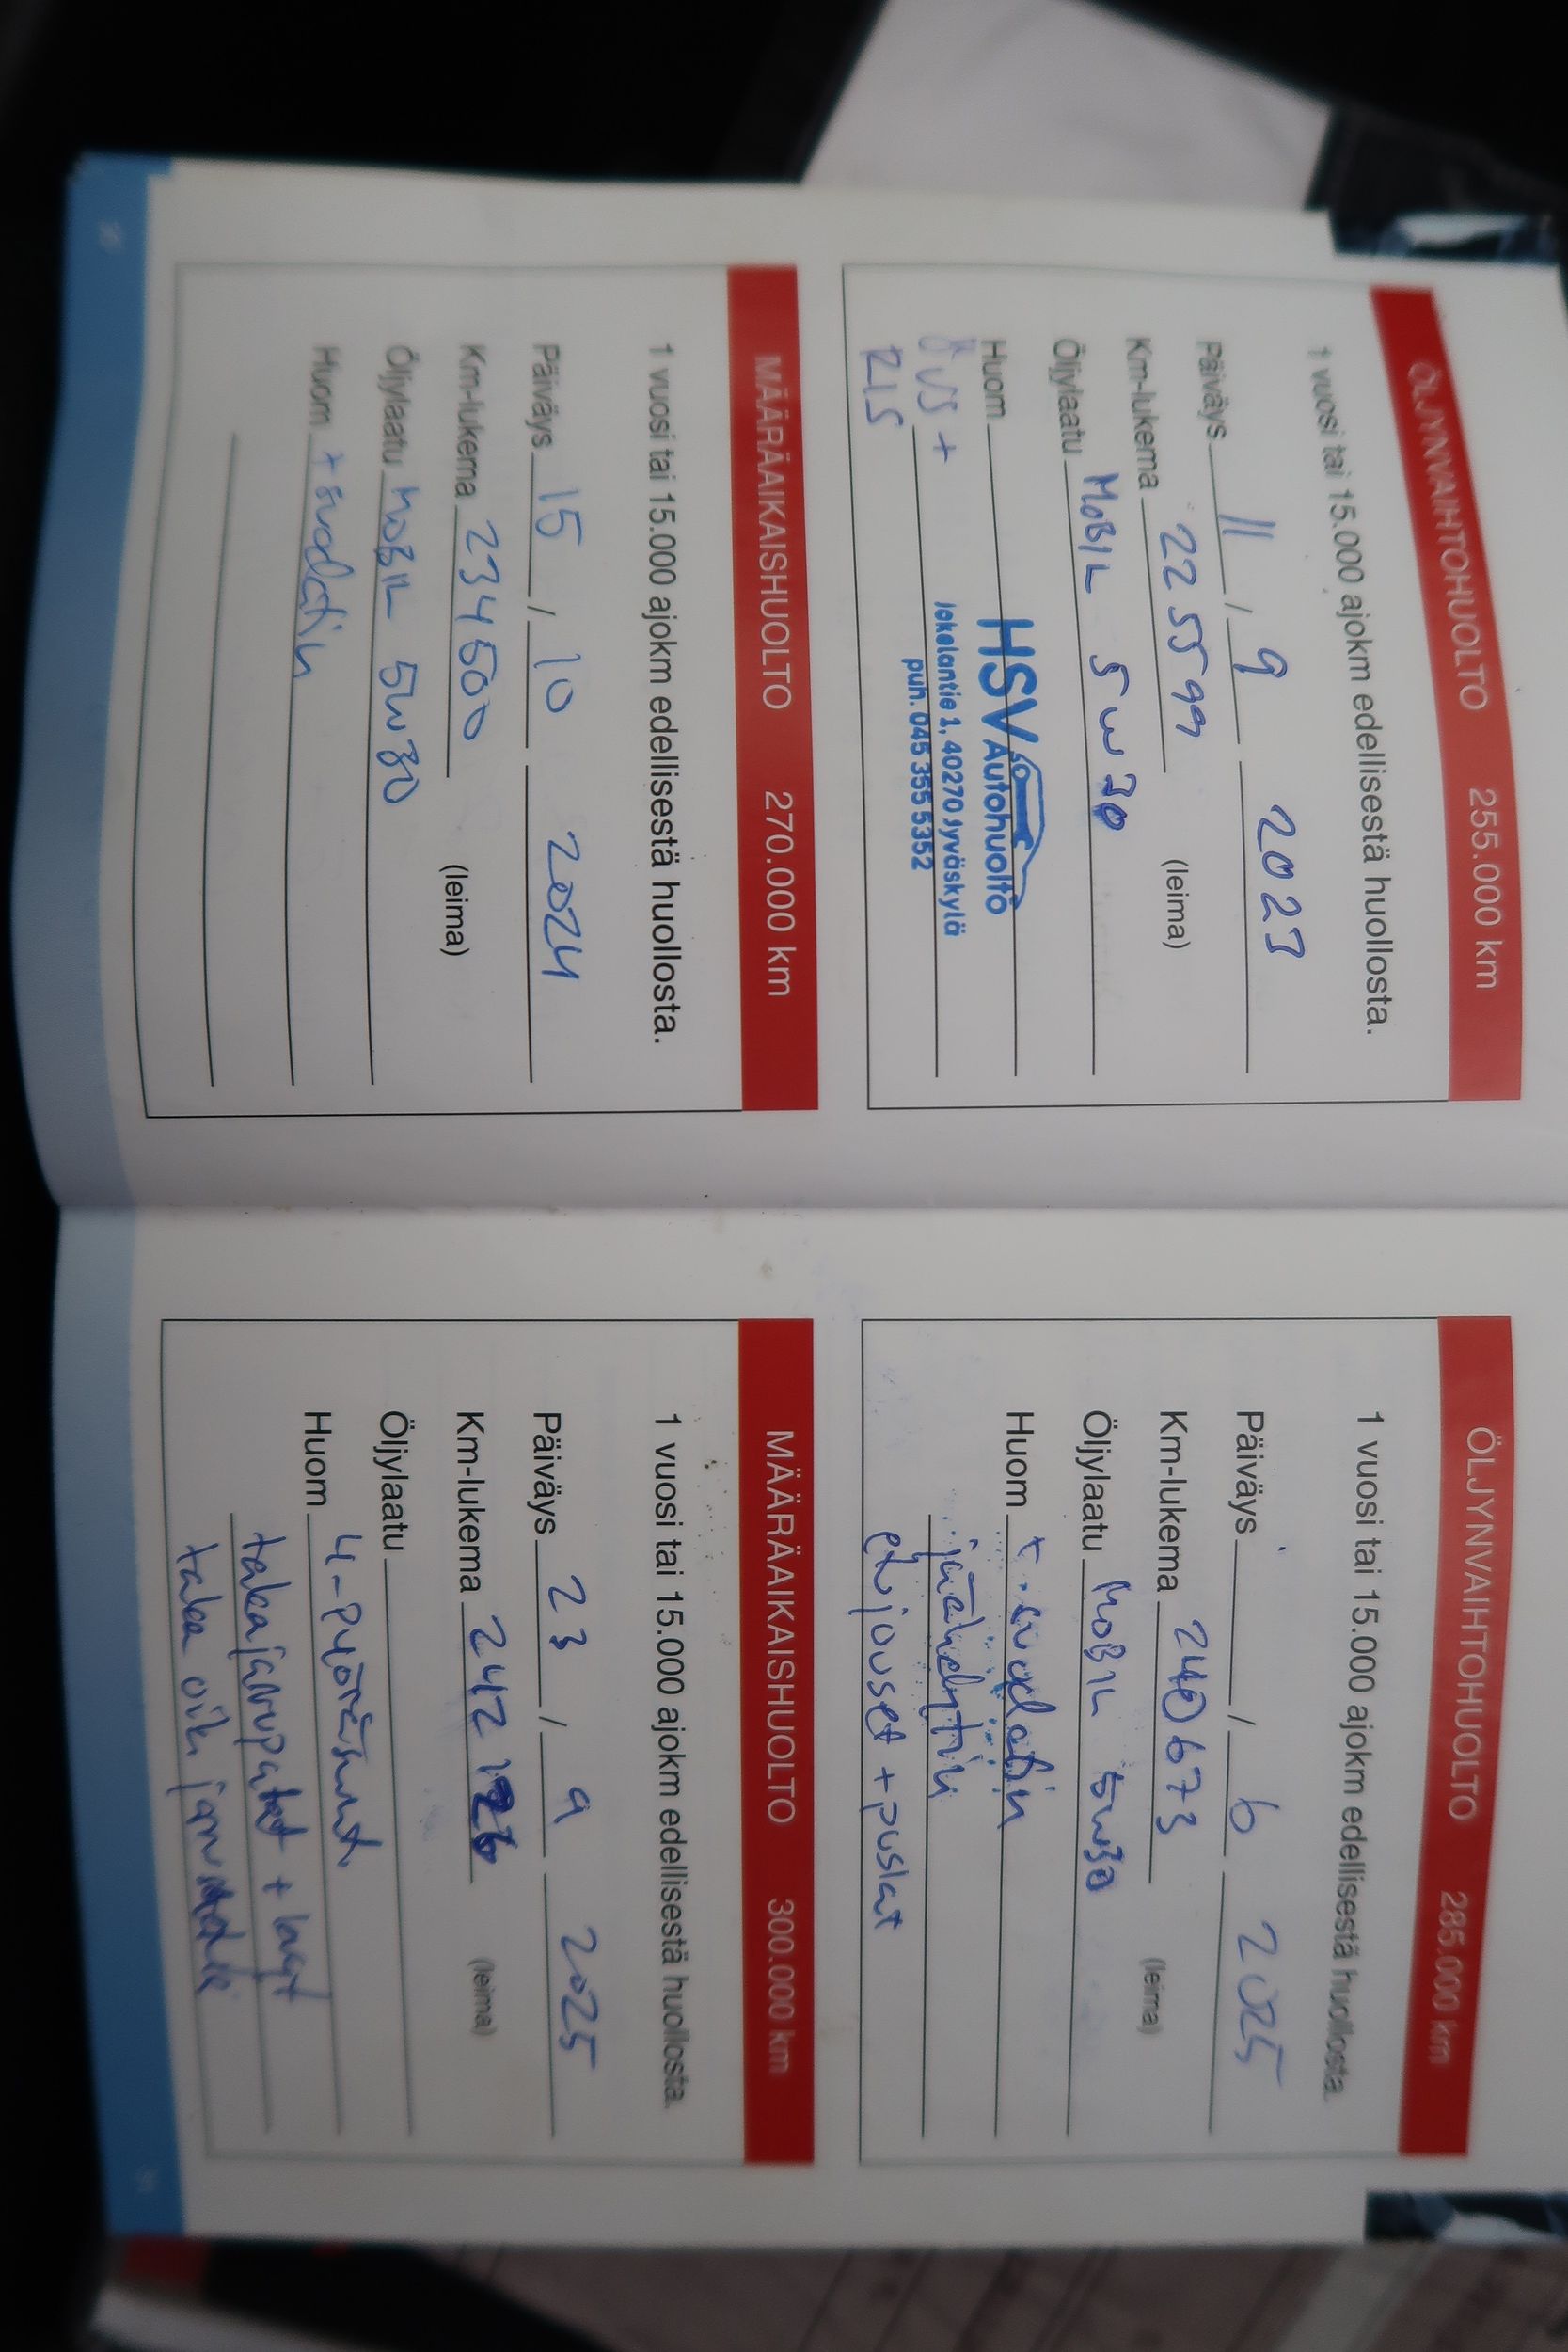 ÖLJYNVAIHTOHUOLTO 255.000 km
1 vuosi tai 15.000 ajokm edellisestä huollosta.
Päiväys 11 / 9 2023
Km-lukema 225599 (leima)
Öljylaatu MOBIL 5w30
Huom
HSV Autohuolto
Jokelantie 1, 40270 Jyväskylä
puh. 045 355 5352
ÖVS +
RIS
MÄÄRÄAIKAISHUOLTO 270.000 km
1 vuosi tai 15.000 ajokm edellisestä huollosta.
Päiväys 15 / 10 2024
Km-lukema 234500 (leima)
Öljylaatu MOBIL 5W30
Huom + suodatin
ÖLJYNVAIHTOHUOLTO 285.000 km
1 vuosi tai 15.000 ajokm edellisestä huollosta.
Päiväys / 6 2025
Km-lukema 240673 (leima)
Öljylaatu MOBIL 5w30
Huom + suodatin
jäähdytin
etujouset + puslat
MÄÄRÄAIKAISHUOLTO 300.000 km
1 vuosi tai 15.000 ajokm edellisestä huollosta.
Päiväys 23 / 9 2025
Km-lukema (leima)
Öljylaatu
Huom 4-pyöräsuunt.
takajarrupalat +
taka oik